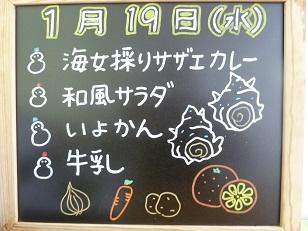 1月19日(水)
海女採りサザエカレー
和風サラダ
いよかん
牛乳